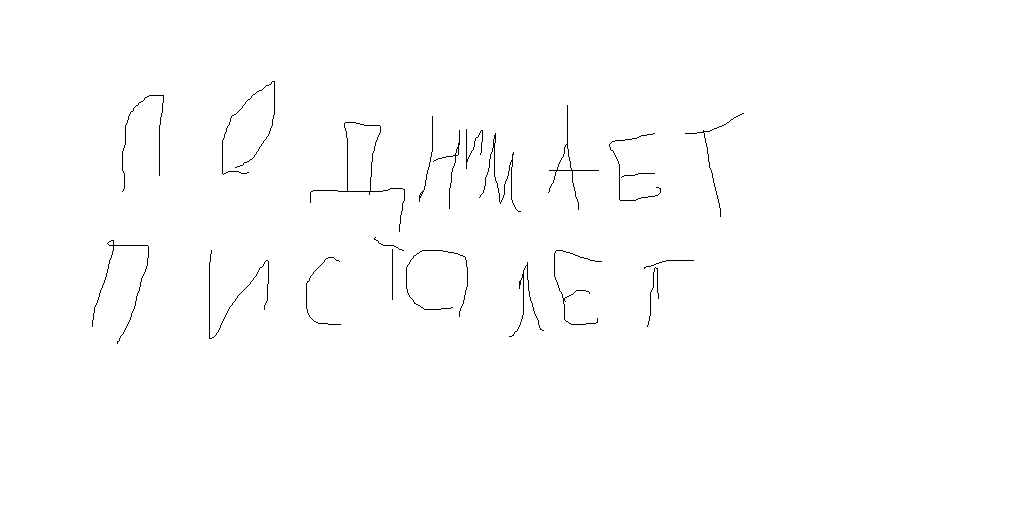 ПОДНИМАЕТ
ПИСТОЛЕТ